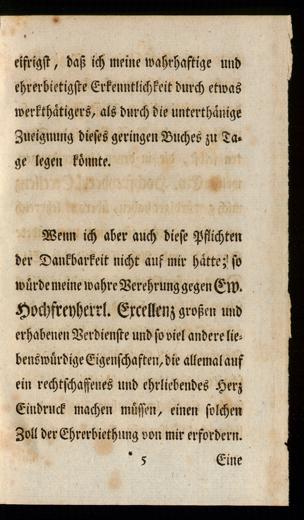 eifrigſt, daß ich meine wahrhaftige und
ehrerbietigſte Erkenntlichkeit durch etwas
werkthätigers, als durch die unterthänige
Zueignung dieſes geringen Buches zu Ta-
ge legen könnte.
Wenn ich aber auch dieſe Pflichten
der Dankbarkeit nicht auf mir hätte; ſo
würde meine wahre Verehrung gegen Ew.
Hochfreyherrl. Excellenz großen und
erhabenen Verdienſte und ſo viel andere lie-
benswürdige Eigenſchaften, die allemal auf
ein rechtſchaffenes und ehrliebendes Herz
Eindruck machen müſſen, einen ſolchen
Zoll der Ehrerbiethung von mir erfordern.
* 5 Eine